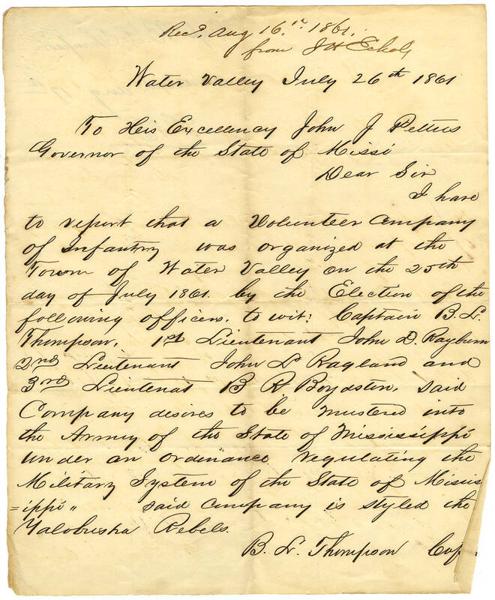 Recd. Aug 16th 1861.
from J H Echols
Water Valley July 26th 1861
To His Excellency John J Pettus
Governor of the State of Missi
Dear Sir
I have
to report that a Volunteer Company
of Infantry was organized at the
Town of Water Valley on the 25th
day of July 1861. by the Election of the
following officers, to wit: Captain B. L.
Thompson, 1st Lieutenant John D. Rayburn
2nd Lieutenant John L Ragland and
3rd Lieutenat B R Boydston, said
Company desires to be mustered into
the Army of the State of Mississippi
under an Ordinance regulating the
Military System of the State of Missis
=ippi" said company is styled the
Yalobusha Rebels.
B. L. Thompson Cap